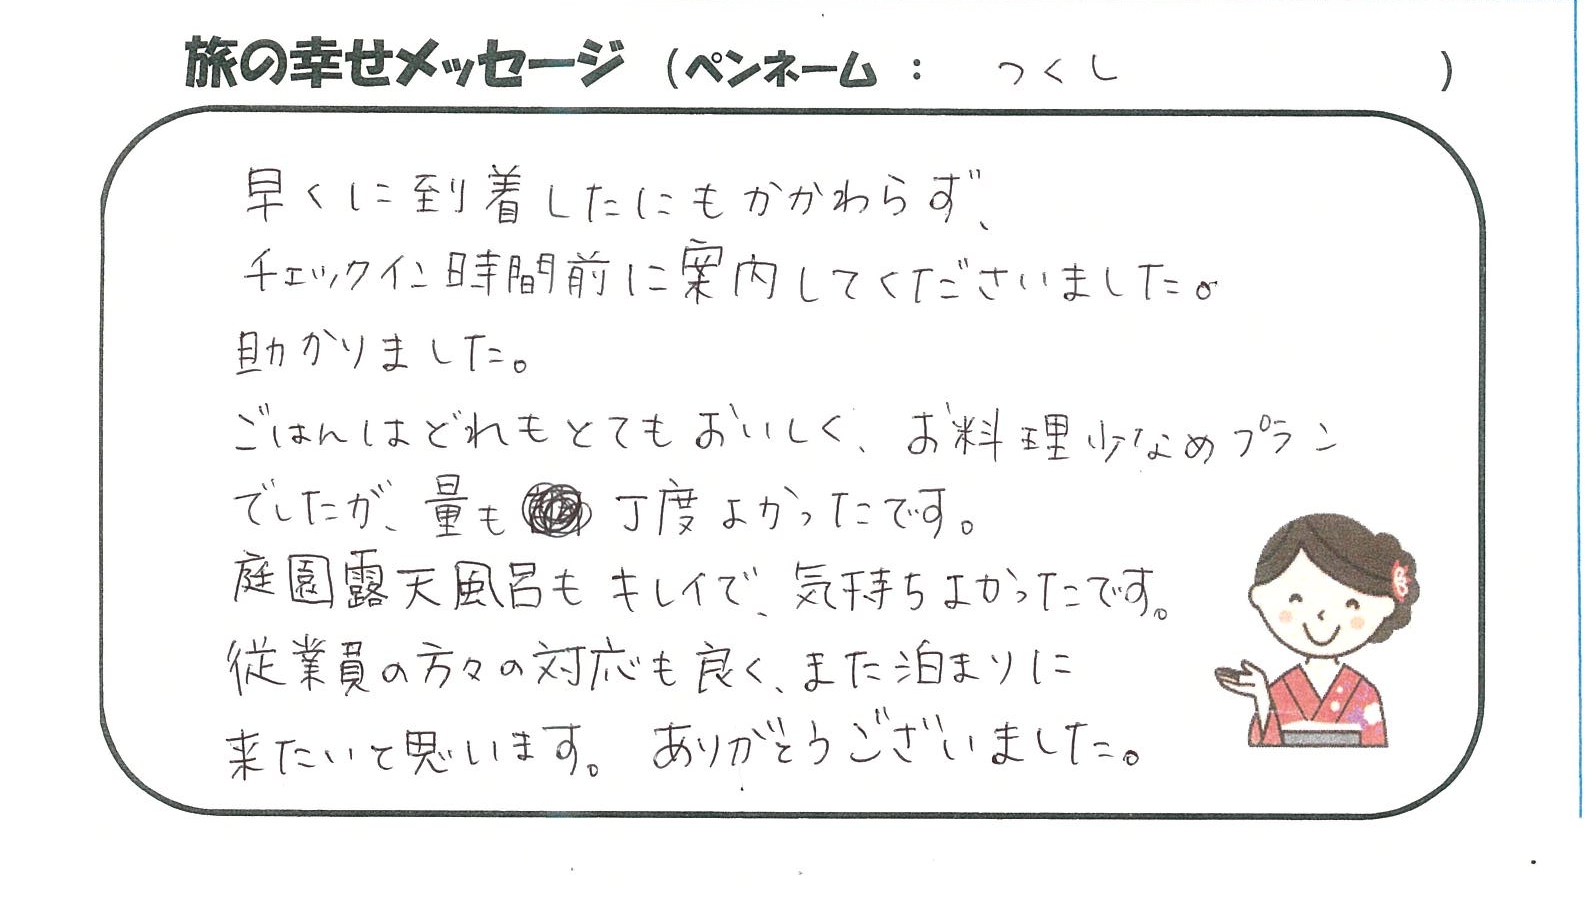 旅の幸せメッセージ (ペンネーム : つくし )
早くに到着したにもかかわらず、
チェックイン時間前に案内してくださいました。
助かりました。
ごはんはどれもとてもおいしく、お料理少なめプラン
でしたが、量も丁度よかったです。
庭園露天風呂もキレイで、気持ちよかったです。
従業員の方々の対応も良く、また泊まりに
来たいと思います。 ありがとうございました。